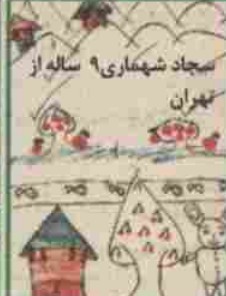 سجاد شهماری ۹ ساله از
تهران